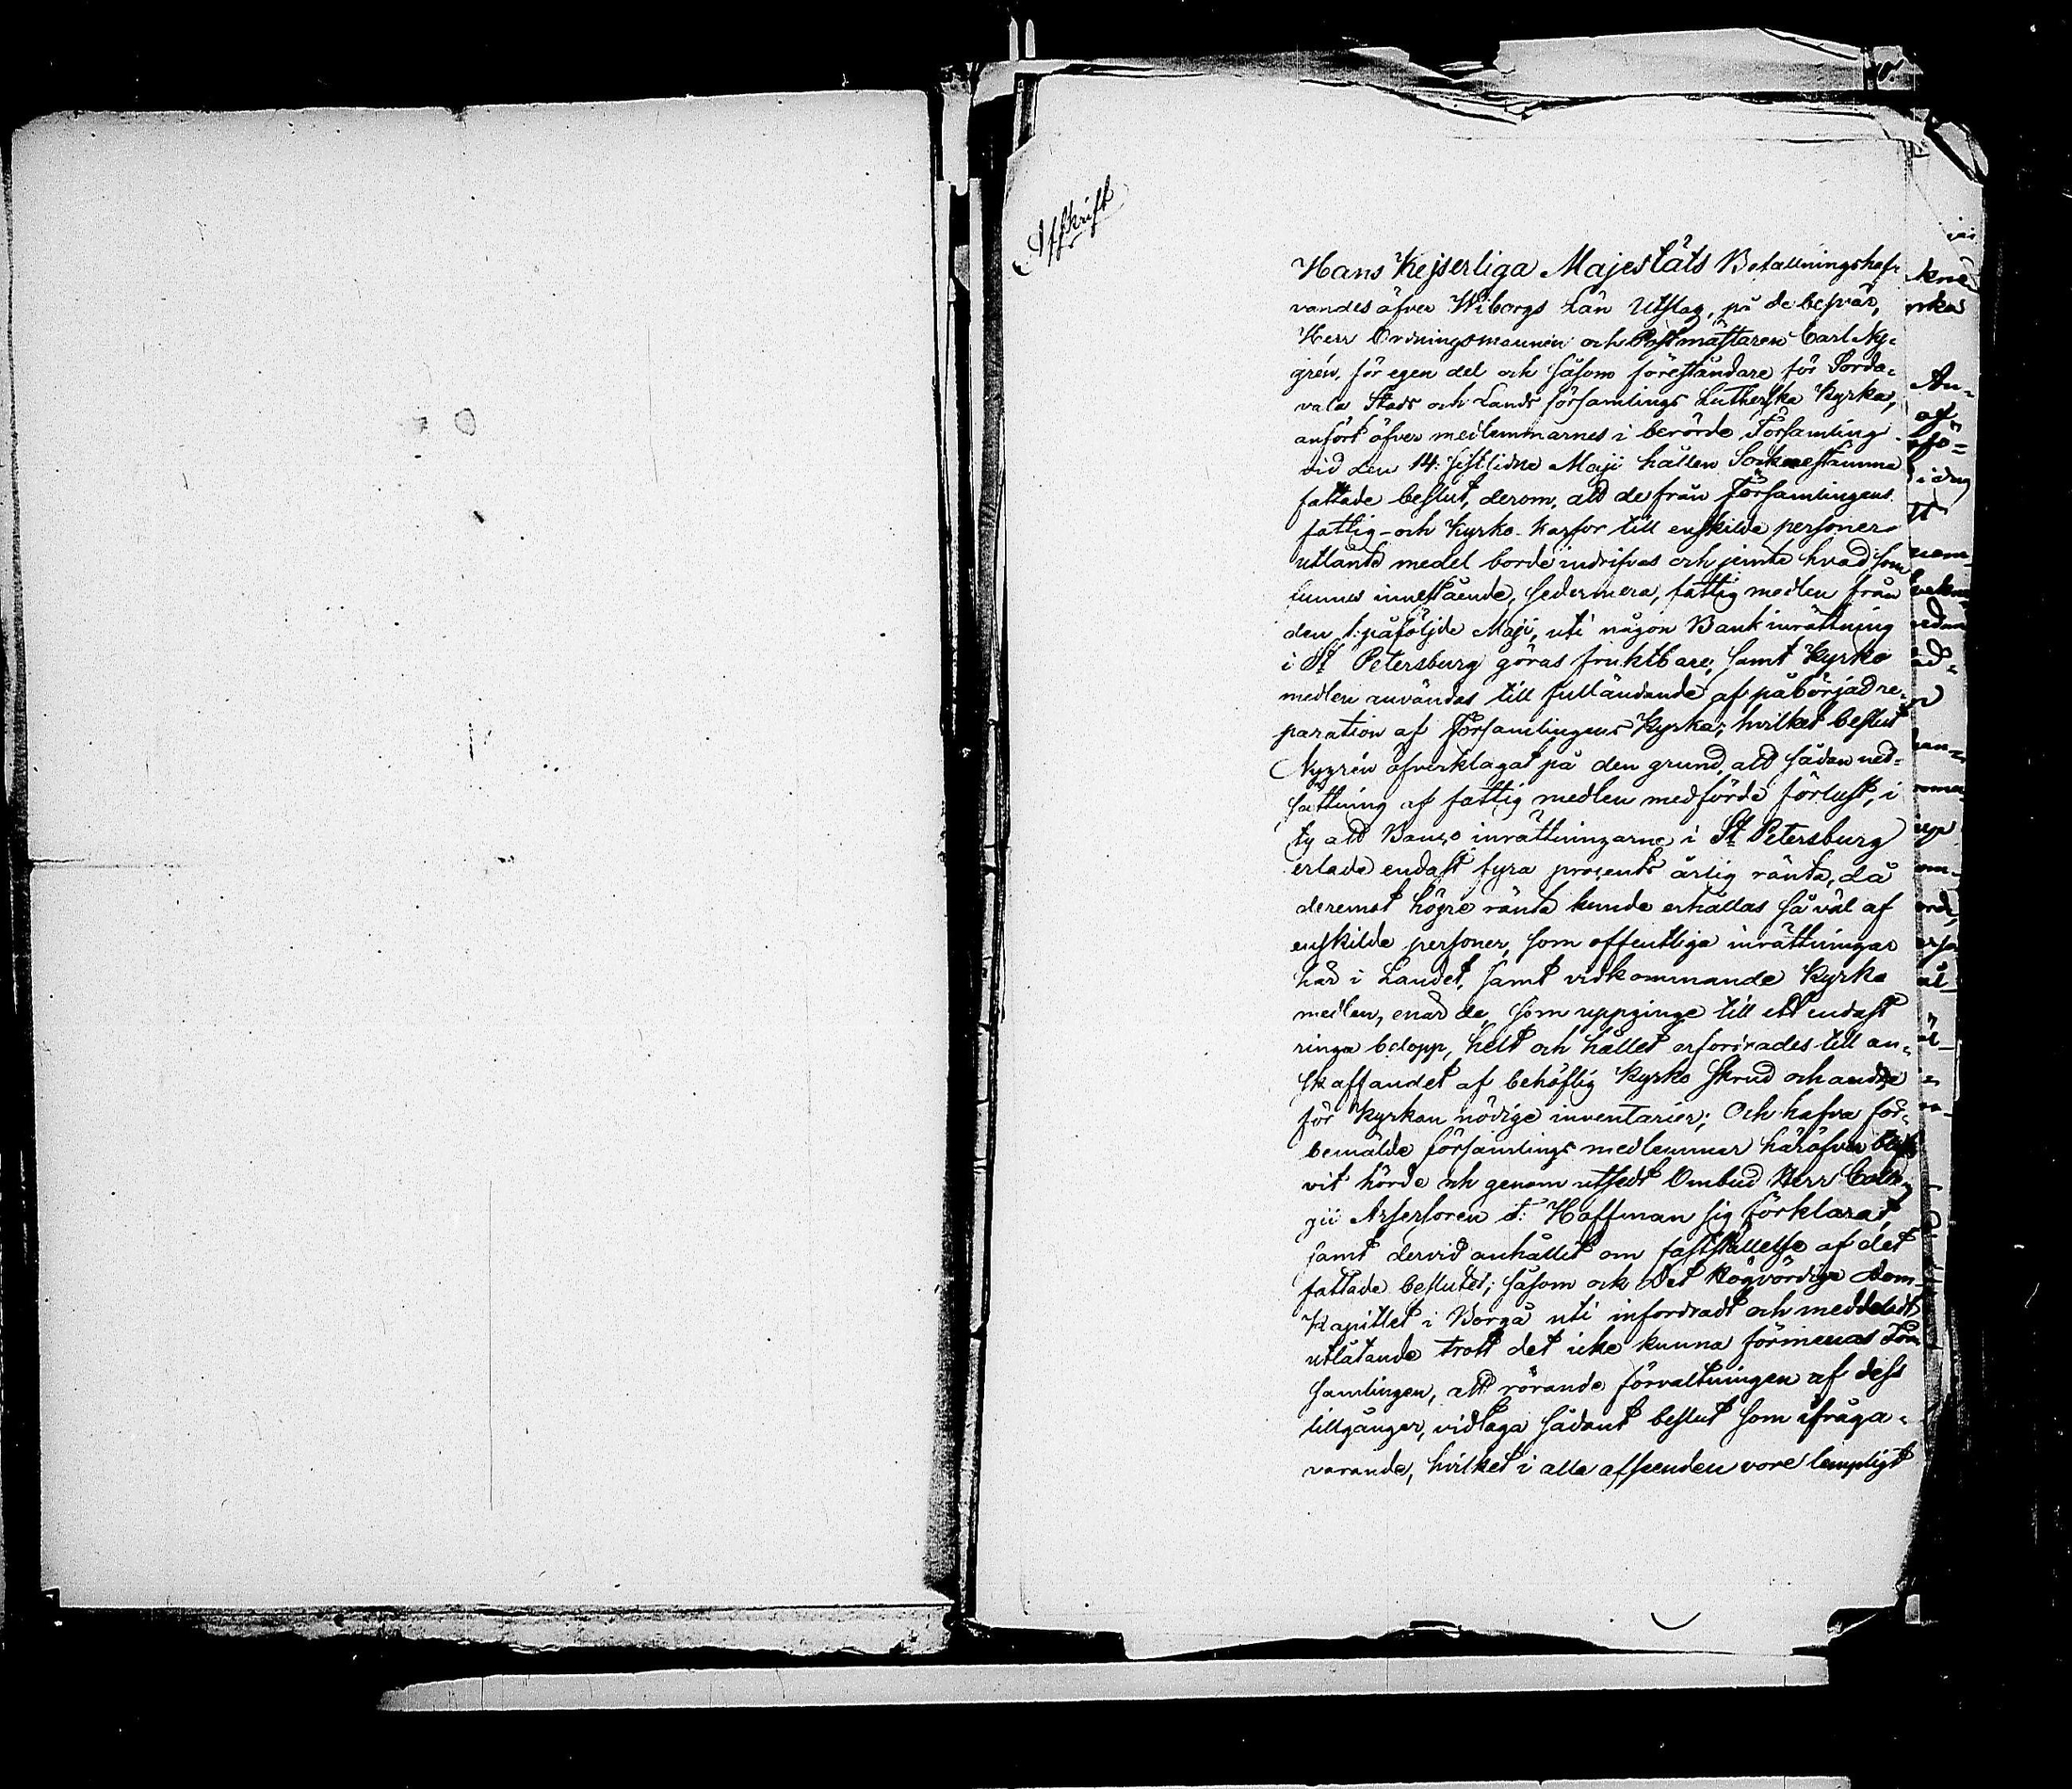 Afskrift
Hans Kejserliga Majestäts Befallningshaf-
vandes öfver Wiborgs Län Utslag, på de besvär,
Herr Ordningsmannen och Postmästaren Carl Ny-
grén, för egen del och såsom föreståndare för Sorda-
vala Stads och Lands församlings Lutherska Kyrka,
anfört öfver medlemmarnes i berörde Församling
vid den 14: sistlidne Maji hållen Sockenestämma
fattade beslut, derom, att de från Församlingens
fattig- och Kyrko-Kassor till enskilde personer
utlånte medel borde indrifvas och jemte hvad som
funnes innestående, sedermera, fattig medlen från
den 1: påföljde Maji, uti någon Bank inrättning
i St Petersburg göras fruktbare, samt Kyrko
medlen användas till fulländande af påbörjad re-
paration af Församlingens Kyrka; hvilket beslut
Nygrén öfverklagat på den grund, att sådan ned-
sättning af fattig medlen medförde förlust, i
ty att Banco inrättningarne i St Petersburg
erlade endast fyra procents årlig ränta, då
deremot högre ränta kunde erhållas så väl af
enskilde personer, som offentliga inrättningar
här i Landet, samt vidkommande Kyrko
medlen, enär de, som uppginge till ett endast
ringa belopp, helt och hållet erfordrades till an-
skaffandet af behöflig Kyrko skrud och andre
för Kyrkan nödige inventarier; Och hafva för-
bemälde församlings medlemmar häröfver blif-
vit hörde och genom utsedt Ombud Herr Colle-
gii Assessoren Hoffman sig förklarat,
samt dervid anhållit om fastställelse af det
fattade beslutet; såsom ock Det Högvördige Dom-
Kapitlet i Borgå uti infordradt och meddeladt
utlåtande trott det icke kunna förmenas För-
samlingen, att rörande förvaltningen af dess
tillgångar, vidtaga sådant beslut som ifråga-
varande, hvilket i alla afseenden vore lempligt